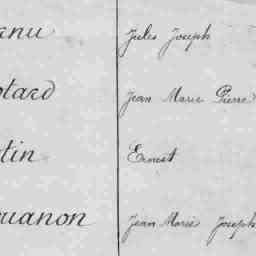 rnu Jules Joseph
otard Jean Marie Pierre
tin Ernest
uanon Jean Marie Joseph